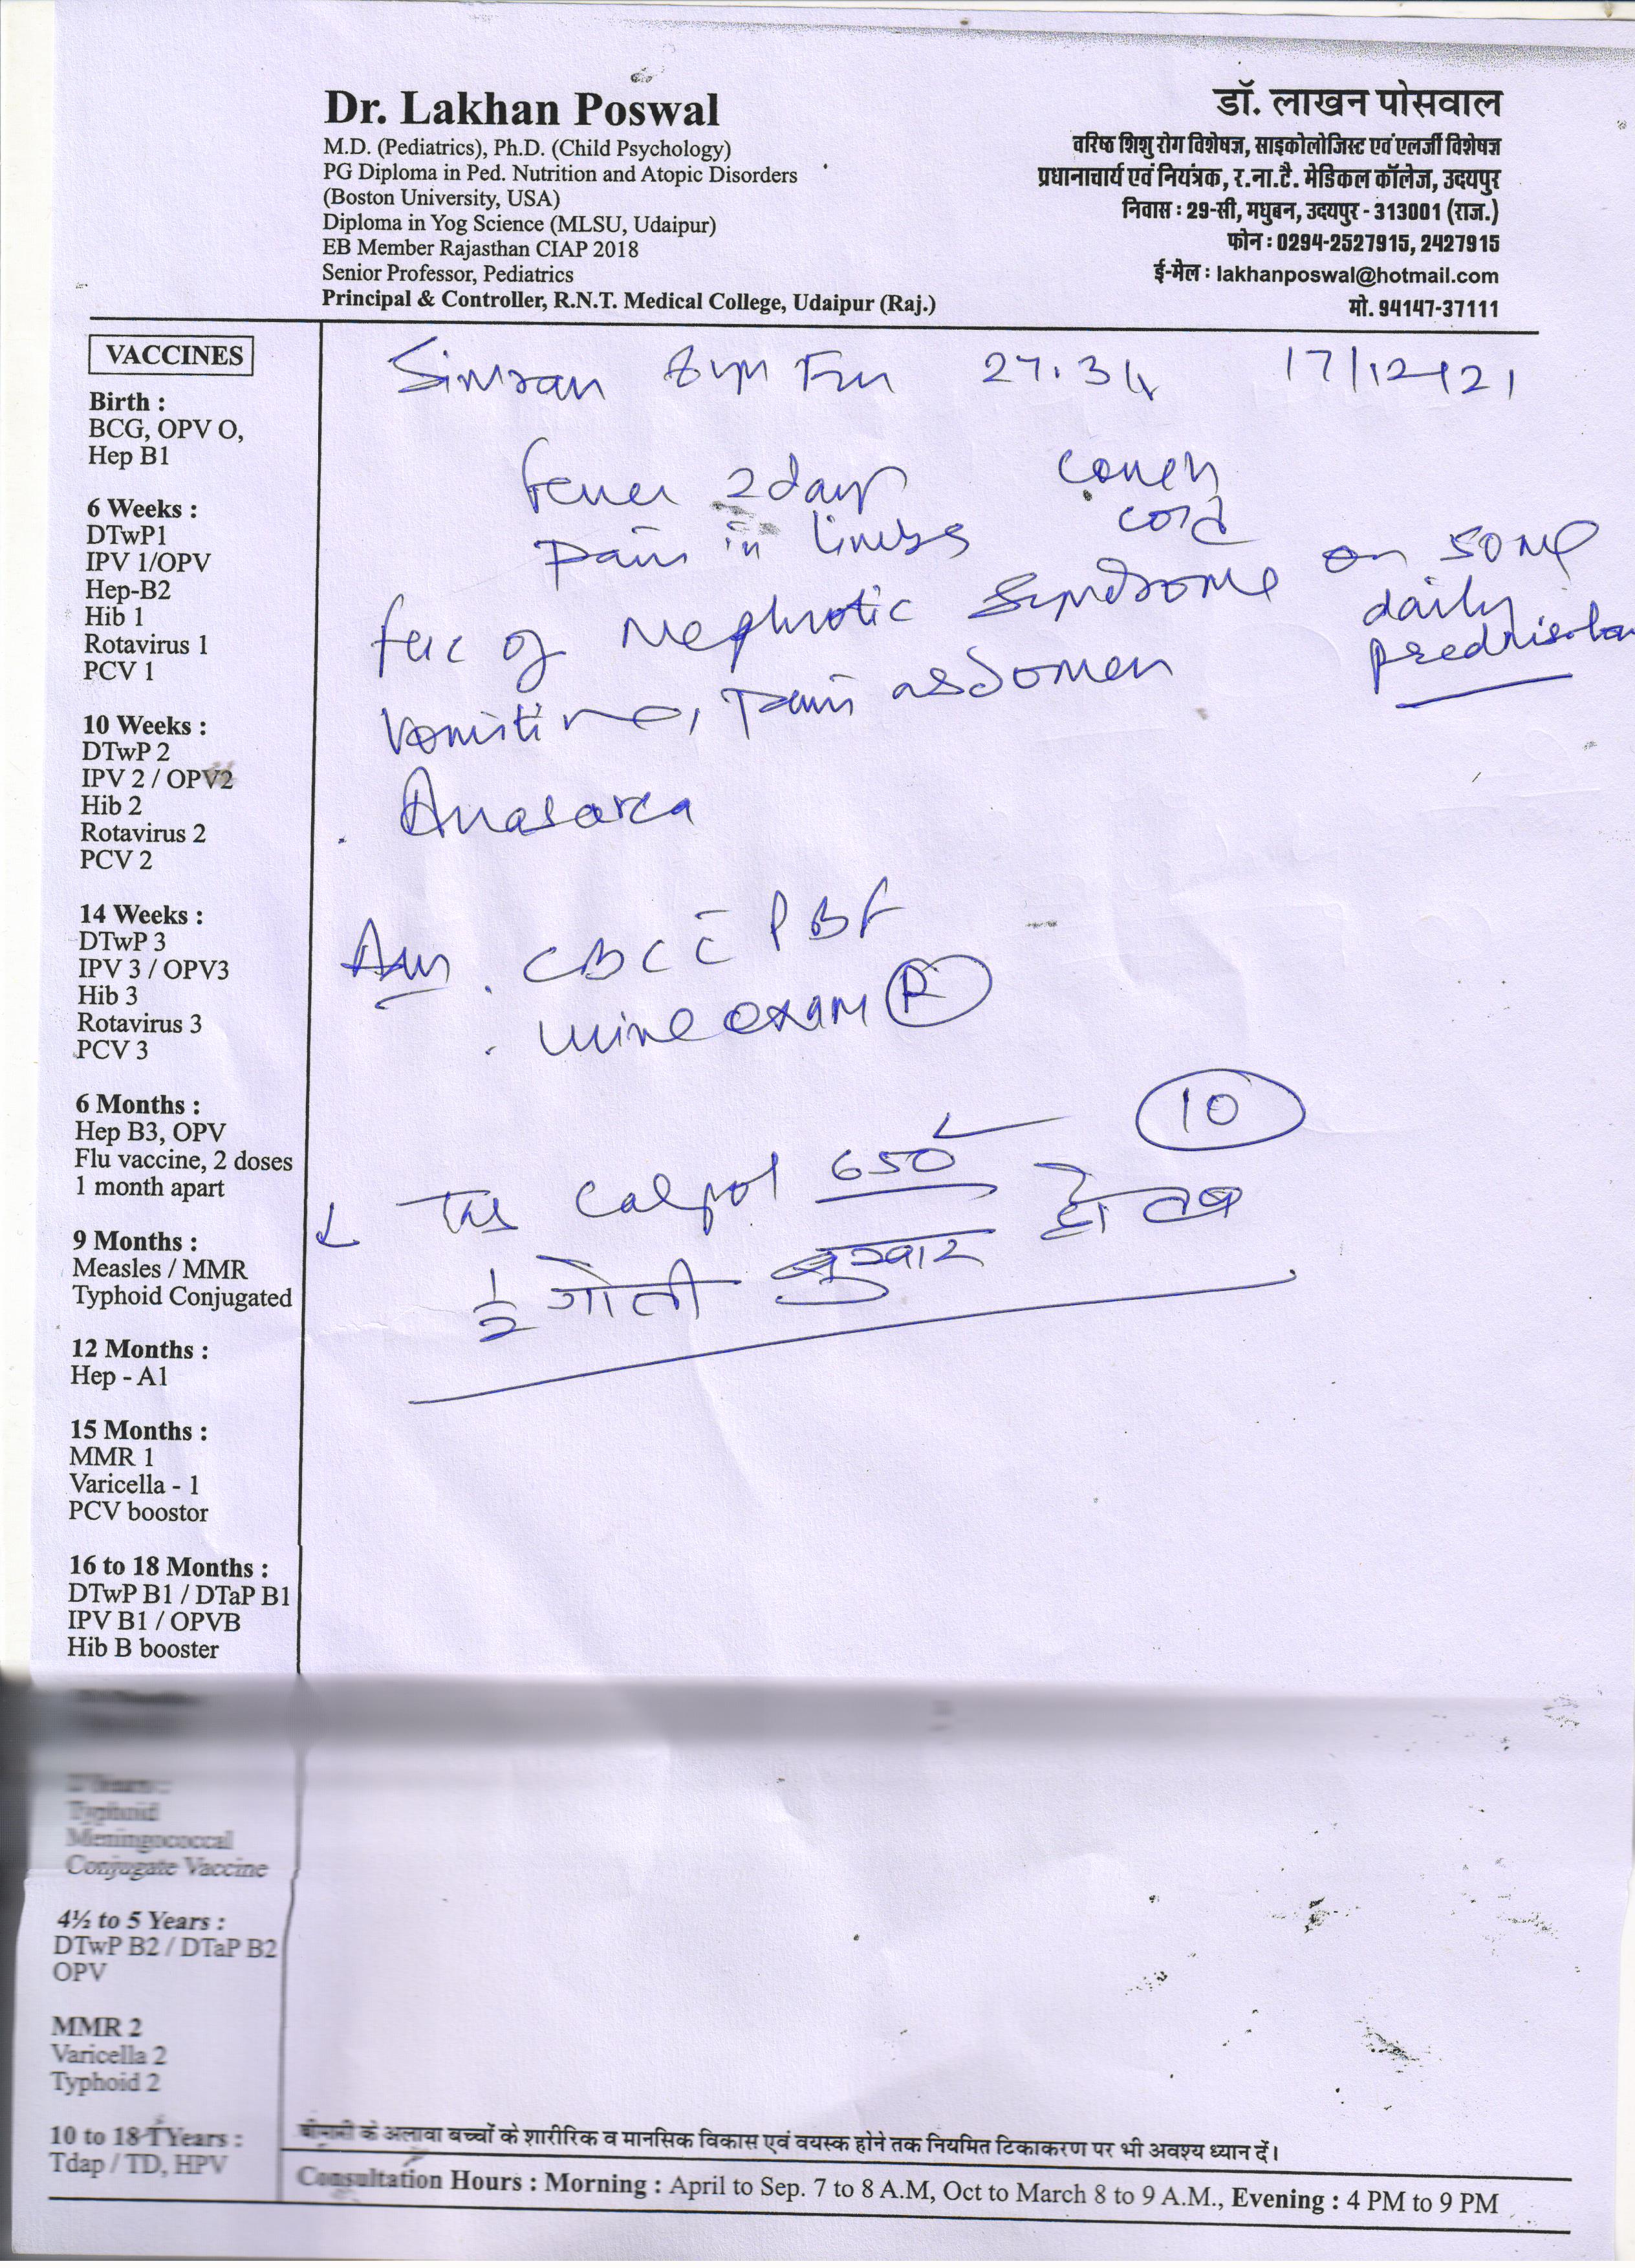 Dr. Lakhan Poswal
M.D. (Pediatrics), Ph.D. (Child Psychology)
PG Diploma in Ped. Nutrition and Atopic Disorders
(Boston University, USA)
Diploma in Yog Science (MLSU, Udaipur)
EB Member Rajasthan CIAP 2018
Senior Professor, Pediatrics
Principal & Controller, R.N.T. Medical College, Udaipur (Raj.)
डॉ. लाखन पोसवाल
वरिष्ठ शिशु रोग विशेषज्ञ, साइकोलोजिस्ट एवं एलर्जी विशेषज्ञ
प्रधानाचार्य एवं नियंत्रक, र.ना.टै. मेडिकल कॉलेज, उदयपुर
निवास : 29-सी, मधुबन, उदयपुर - 313001 (राज.)
फोन : 0294-2527915, 2427915
ई-मेल : lakhanposwal@hotmail.com
मो. 94147-37111
VACCINES
Birth :
BCG, OPV O,
Hep B1
6 Weeks :
DTwP1
IPV 1/OPV
Hep-B2
Hib 1
Rotavirus 1
PCV 1
10 Weeks :
DTwP 2
IPV 2 / OPV2
Hib 2
Rotavirus 2
PCV 2
14 Weeks :
DTwP 3
IPV 3 / OPV3
Hib 3
Rotavirus 3
PCV 3
6 Months :
Hep B3, OPV
Flu vaccine, 2 doses
1 month apart
9 Months :
Measles / MMR
Typhoid Conjugated
12 Months :
Hep - A1
15 Months :
MMR 1
Varicella - 1
PCV boostor
16 to 18 Months :
DTwP B1 / DTaP B1
IPV B1 / OPVB
Hib B booster
Typhoid
Meningococcal
Conjugate Vaccine
4½ to 5 Years :
DTwP B2 / DTaP B2
OPV
MMR 2
Varicella 2
Typhoid 2
10 to 18 Years :
Tdap / TD, HPV
Simran 17/12/21
fever 2 days cough
pain in limbs cold
of Nephrotic Syndrome on 50 mg
daily
prednisolo
Vomiting, pain abdomen
Anasarca
CBC c̄ PBF
urine exam R
10
Tab Calpol 650
½ गोली बुखार हो तब
बीमारी के अलावा बच्चों के शारीरिक व मानसिक विकास एवं वयस्क होने तक नियमित टिकाकरण पर भी अवश्य ध्यान दें।
Consultation Hours : Morning : April to Sep. 7 to 8 A.M, Oct to March 8 to 9 A.M., Evening : 4 PM to 9 PM